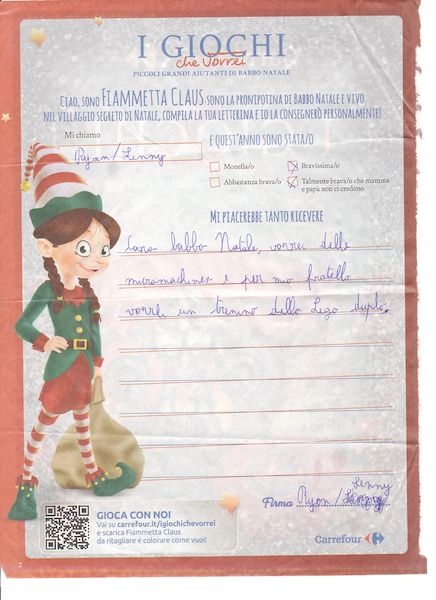 I GIOCHI
che Vorrei
PICCOLI GRANDI AIUTANTI DI BABBO NATALE
CIAO, SONO FIAMMETTA CLAUS SONO LA PRONIPOTINA DI BABBO NATALE E VIVO
NEL VILLAGGIO SEGRETO DI NATALE, COMPILA LA TUA LETTERINA E IO LA CONSEGNERÒ PERSONALMENTE!
Mi chiamo
Ryan/Lenny
E QUEST'ANNO SONO STATA/O
Monella/o
Bravissima/o
Abbastanza brava/o
Talmente brava/o che mamma
e papà non ci credono
MI PIACEREBBE TANTO RICEVERE
Caro babbo Natale, vorrei delle
micromachines e per mio fratello
vorrei un trenino della Lego duplo.
Lenny
Firma Ryan/
GIOCA CON NOI
Vai su carrefour.it/igiochichevorrei
e scarica Fiammetta Claus
da ritagliare e colorare come vuoi!
Carrefour
2